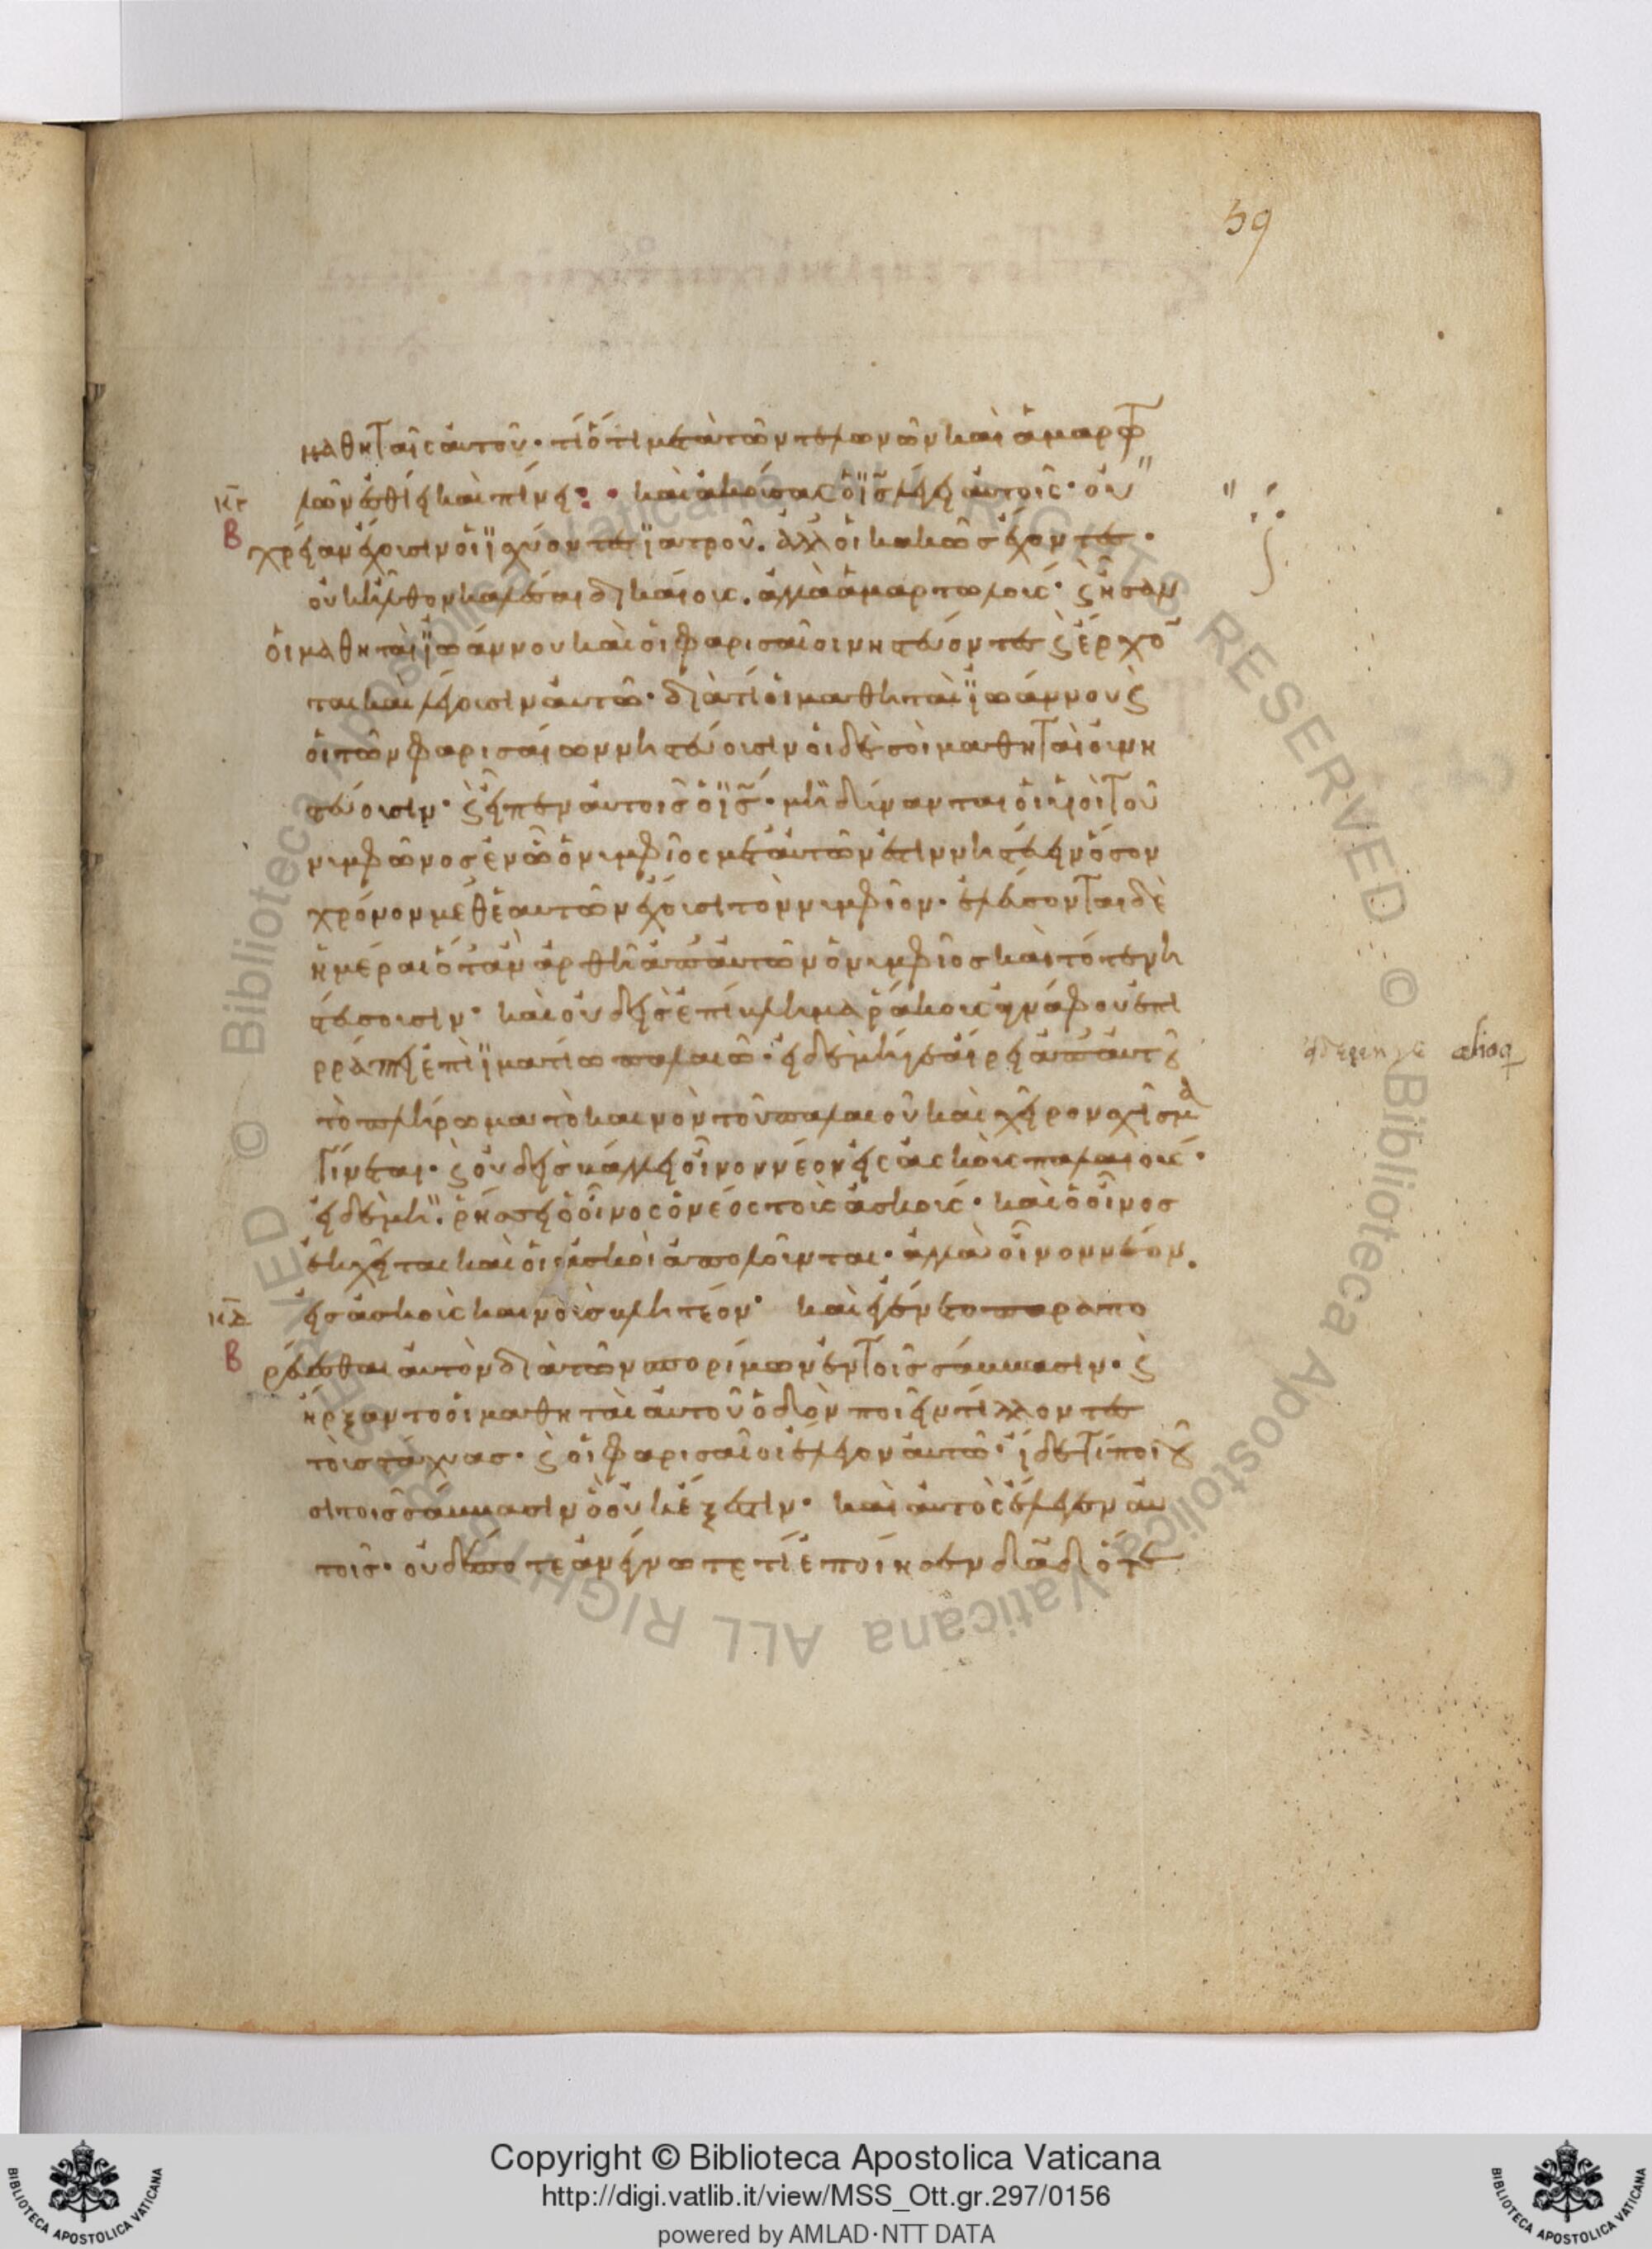 59
μαθηταῖς αὐτοῦ· τί ὅτι μετὰ τῶν τελωνῶν καὶ ἁμαρτω
λῶν ἐσθίει καὶ πίνει: · καὶ ἀκούσας ὁ ϊς λέγει αὐτοῖς· οὐ
χρείαν ἔχουσιν οἱ ϊσχύοντες ϊατροῦ. ἀλλ οἱ κακῶς ἔχοντες·
οὐκ ἦλθον καλέσαι δικαίους. ἀλλὰ ἁμαρτωλούς· ϗ ἦσαν
οἱ μαθηταὶ ϊωάννου καὶ οἱ φαρισαῖοι νηστεύοντες ϗ ἔρχο
ται καὶ λέγουσιν αὐτῶ· διὰ τί οἱ μαθηταὶ ϊωάννου ϗ
οἱ τῶν φαρισαίων νηστεύουσιν οἱ δὲ σοὶ μαθηταὶ οὐ νη
στεύουσιν· ϗ εἶπεν αὐτοῖς ὁ ϊς· μὴ δύνανται οἱ υἱοὶ τοῦ
νυμφῶνος ἐν ὧ ὁ νυμφίος μετ αὐτῶν ἐστιν νηστεύειν ὅσον
χρόνον μεθ ἑαυτῶν ἔχουσι τὸν νυμφίον· ἐλεύσονται δὲ
ἡμέραι ὅταν ἀρθῆ ἀπ αὐτῶν ὁ νυμφίος καὶ τότε νη
στεύσουσιν· καὶ οὐδεὶς ἐπίβλημα ῥάκους ἀγνάφου ἐπι
ρράπτει ἐπὶ ϊματίω παλαιῶ· εἰ δὲ μήγε αἴρει ἀπ αὐτοῦ
τὸ πλήρωμα τὸ καινὸν τοῦ παλαιοῦ καὶ χεῖρον σχίσμα
γίνεται· ϗ οὐδεὶς βάλλει οἶνον νέον εἰς ἀσκοὺς παλαιούς·
εἰ δὲ μή. ῥήσσει ὁ οἶνος ὁ νέος τοὺς ἀσκούς· καὶ ὁ οἶνος
ἐκχεῖται καὶ οἱ ἀσκοὶ ἀπολοῦνται· ἀλλὰ οἶνον νέον.
εἰς ἀσκοὺς καινοὺς βλητέον· καὶ ἐγένετο παραπο
ρεύεσθαι αὐτὸν διὰ τῶν σπορίμων ἐν τοῖς σάββασιν· ϗ
ἤρξαντο οἱ μαθηταὶ αὐτοῦ ὁδὸν ποιεῖν τίλλοντες
τοὺς στάχυας· ϗ οἱ φαρισαῖοι ἔλεγον αὐτῶ· ἴδε τί ποιοῦ
σι τοῖς σάββασιν ὃ οὐκ ἔξεστιν· καὶ αὐτὸς ἔλεγεν αὐ
τοῖς· οὐδέποτε ἀνέγνωτε τί ἐποίησεν δαδ ὅτε
κγ
β
κδ
β
Copyright © Biblioteca Apostolica Vaticana
http://digi.vatlib.it/view/MSS_Ott.gr.297/0156
powered by AMLAD·NTT DATA